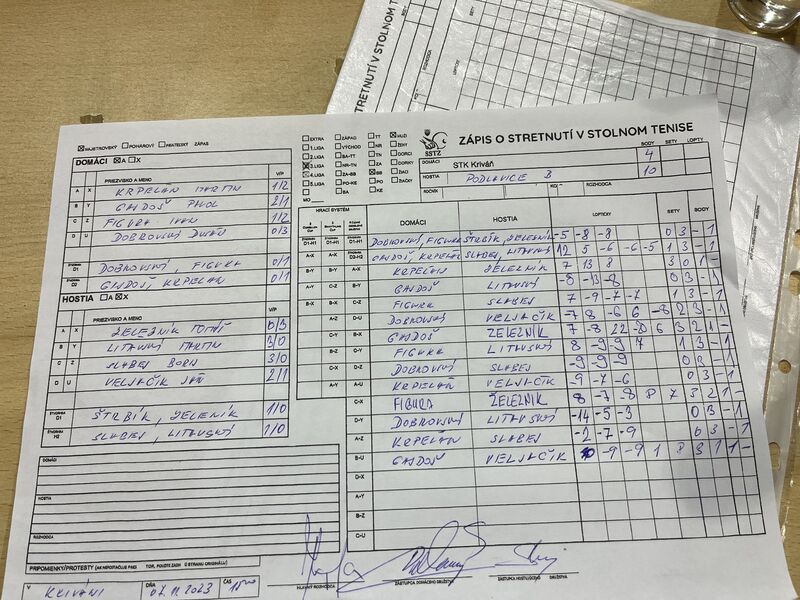 STRETNUTÍ V STOLNOM TENISE
MAJSTROVSKÝ POHÁROVÝ PRIATEĽSKÝ ZÁPAS
DOMÁCI A X
PRIEZVISKO A MENO V/P
A X KRPELAN MARTIN 1/2
B Y GAJDOŠ PAVOL 2/1
C Z FIGURA IVAN 1/2
D U DOBROVSKÝ DUŠAN 0/3
D1 DOBROVSKÝ, FIGURA 0/1
D2 GAJDOŠ KRPELAN 0/1
HOSTIA A X
PRIEZVISKO A MENO V/P
A X ŽELEZNÍK TOMÁŠ 0/3
B Y LITAVSKÝ MARTIN 3/0
C Z SLABEJ BORIS 3/0
D U VELJAČIK JÁN 2/1
ŠTRBÍK, ŽELEZNÍK 1/0
SLABEJ, LITAVSKÝ 1/0
DOMÁCI
HOSTIA
ROZHODCA
PRIPOMIENKY/PROTESTY
V KRIVÁNI DŇA 04.11.2023 ČAS
EXTRA ZÁPAD TT MUŽI
1.LIGA VÝCHOD NR ŽENY
2.LIGA BA-TT TN DORCI
3.LIGA NR-TN ZA DORKY
4.LIGA ZA-BB BB ŽIACI
5.LIGA KE-PO PO ŽIAČKY
BA KE
SSTZ
ZÁPIS O STRETNUTÍ V STOLNOM TENISE
BODY SETY LOPTY
DOMÁCI STK Kriváň 4
HOSTIA PODLAVICE B 10
ROČNÍK ROZHODCA
HRACÍ SYSTÉM DOMÁCI HOSTIA LOPTIČKY SETY BODY
D1-H1 DOBROVSKÝ, FIGURA ŠTRBÍK, ŽELEZNÍK -5 -8 -8 0 3 - 1
GAJDOŠ, KRPELAN SLABEJ, LITAVSKÝ 12 5 -6 -6 -5 1 3 - 1
KRPELAN ŽELEZNÍK 7 13 8 3 0 1 -
GAJDOŠ LITAVSKÝ -8 -13 -8 0 3 - 1
FIGURA SLABEJ 7 -9 -7 -7 1 3 - 1
D-U DOBROVSKÝ VELJAČIK -7 8 -6 6 -8 2 3 - 1
C-Y B-X GAJDOŠ ŽELEZNÍK 7 -8 22 -8 6 3 2 1 -
B-Z C-Y FIGURA LITAVSKÝ 8 -9 -9 1 3 - 1
C-X D-Z DOBROVSKÝ SLABEJ -9 -9 -9 0 3 - 1
A-Y A-U KRPELAN VELJAČIK -9 -7 -6 0 3 - 1
C-X FIGURA ŽELEZNÍK 8 -7 -8 8 7 3 2 1 -
D-Y DOBROVSKÝ LITAVSKÝ -14 -5 -3 0 3 - 1
A-Z KRPELAN SLABEJ -2 -7 -9 0 3 - 1
B-U GAJDOŠ VELJAČIK -9 -9 1 8
D-X
A-Y
B-Z
C-U
HLAVNÝ ROZHODCA ZÁSTUPCA DOMÁCEHO DRUŽSTVA ZÁSTUPCA HOSŤUJÚCEHO DRUŽSTVA